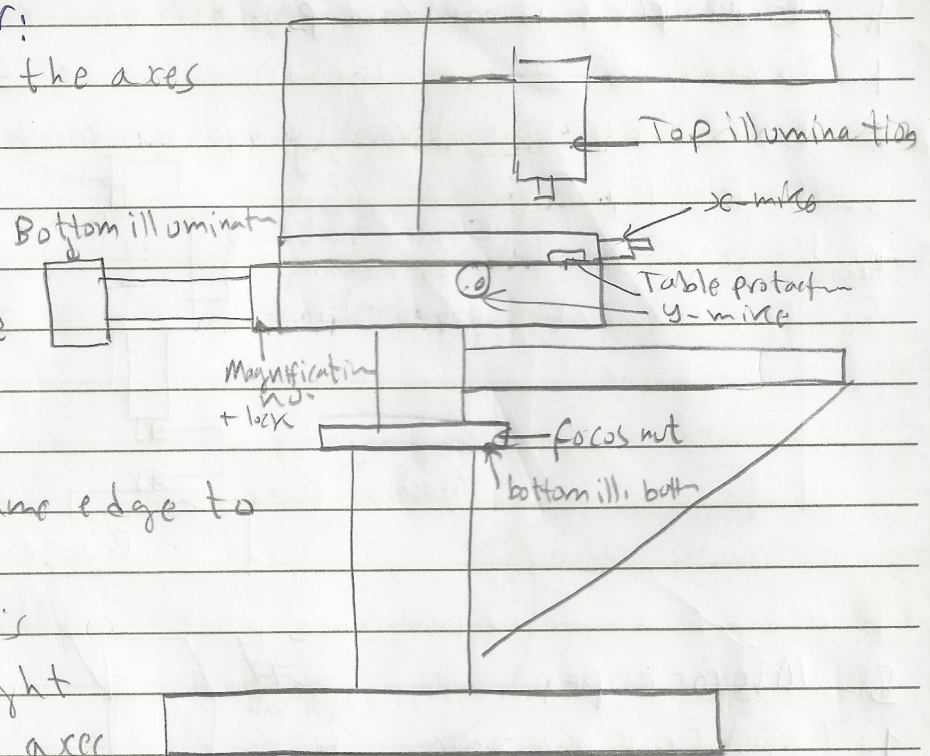 the axes
Top illumination
x-mike
Bottom illuminat
Table protact
y-mike
Magnification
+ lock
focos nut
bottom ill. butt
me edge to
ght
axes